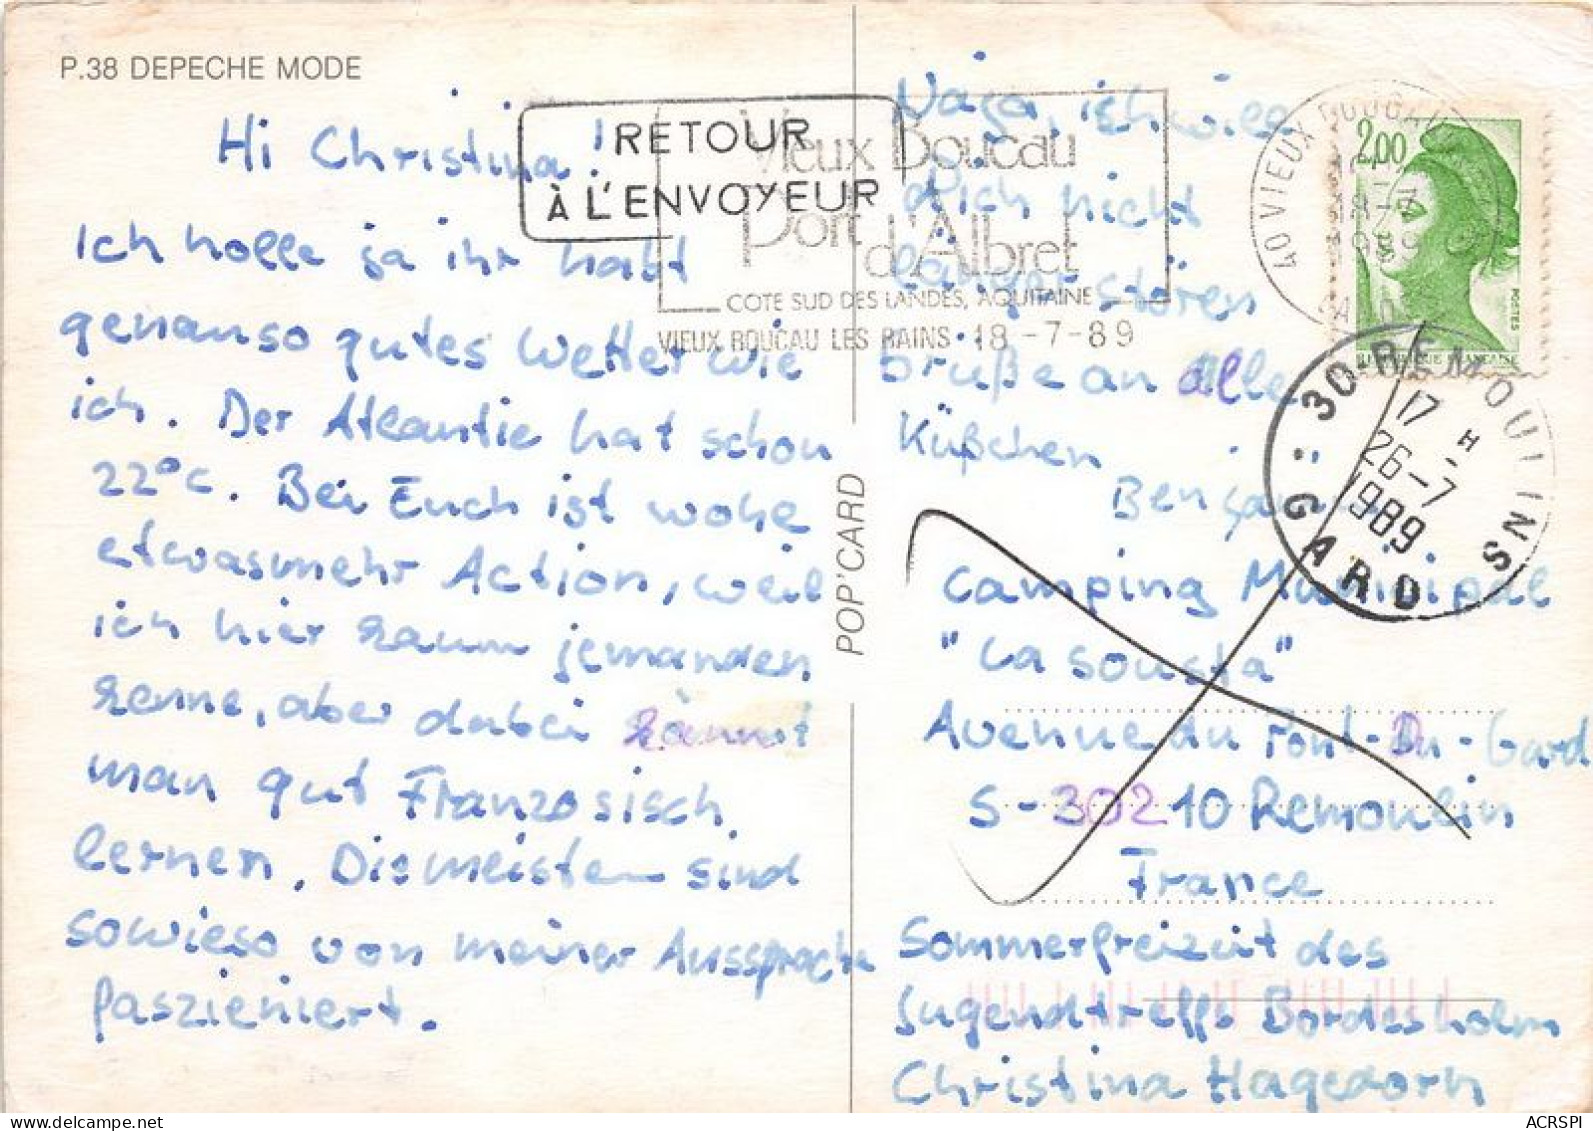 P.38 DEPECHE MODE
Hi Christina!
Ich holle ja ihr habt
genauso gutes Wetter wie
ich. Der Atlantic hat schon
22°C. Bei Euch ist wohl
etwasmehr Action, weil
ich hier kaum jemanden
kenne, aber dabei kännt
man gut Französisch
lernen. Die meisten sind
sowieso von meiner Aussprache
faszieniert.
RETOUR
À L'ENVOYEUR
Vieux Boucau
Port
d'Albret
COTE SUD DES LANDES, AQUITAINE
VIEUX BOUCAU LES BAINS 18-7-89
POP'CARD
Naja, ich will
dich nicht
länger stören
Grüße an alle
Küßchen
Camping Municipal
"La Sousta"
Avenue du Pont-Du-Gard
S-30210 Remoulin
France
Sommerfreizeit des
Jugendtreffs Bordesholm
Christina Hagedorn
40 VIEUX BOUCAU
18-7
2,00
POSTES
REPUBLIQUE FRANÇAISE
30-REMOULINS
17 H
26-7
1989
GARD
ACRSPI